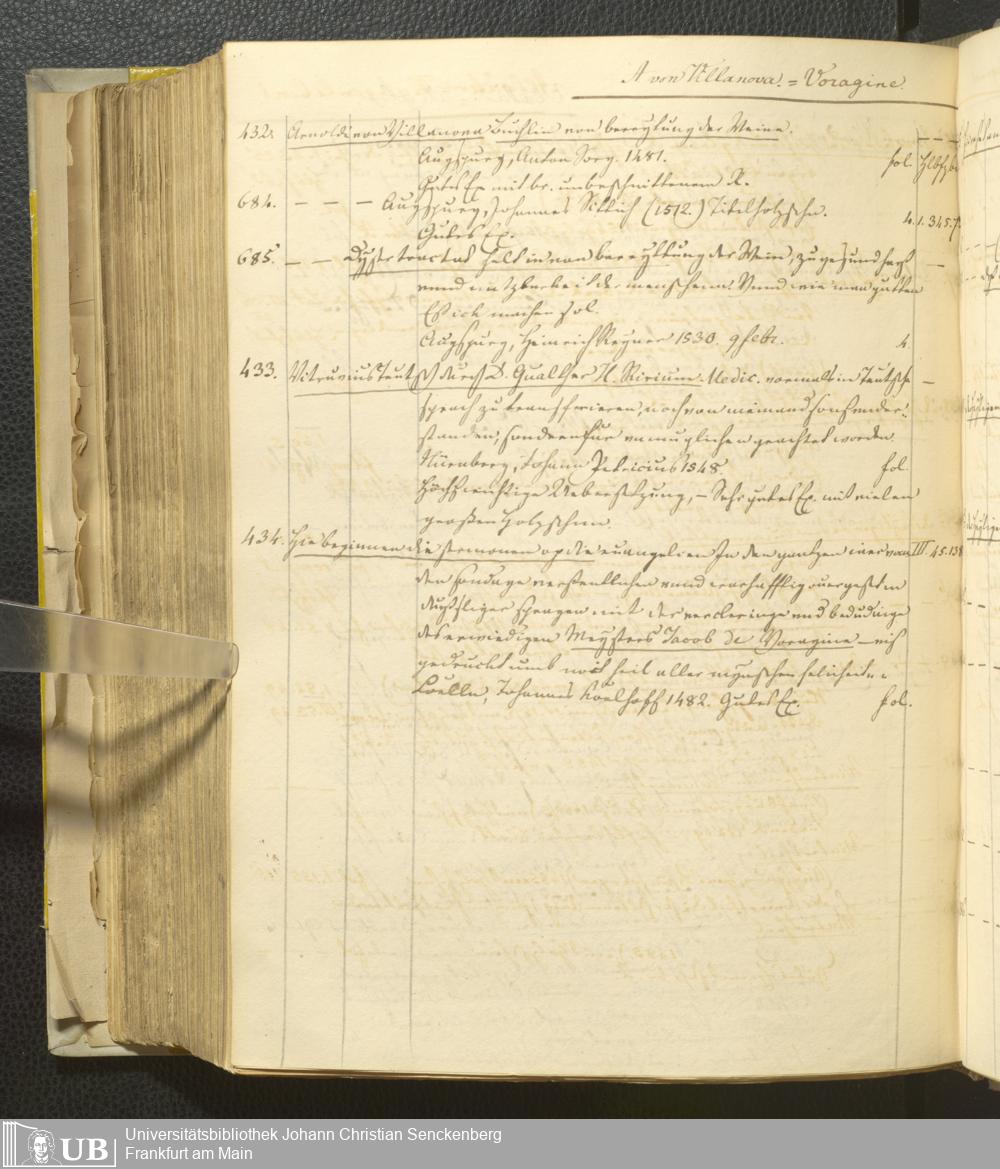 A von Villanova. = Voragine.
432. Arnoldi von Villanova Büchlin von bereytung der Weine.
Augspurg, Anton Sorg. 1481. fol.
Gutes Ex. mit br. unbeschnittenem R.
684. — — — Augspurg, Johannes Sittich (1512.) Titelholzschn. 4. 1. 345.
Gutes Ex.
685. — — Dyser tractat helt in von bereyttung der Wein, zu gesundhayt —
vnnd nutzbarkeit der menschenn. Vnnd wie man gutten
Essich machen sol.
Augspurg, Heinrich Steyner 1530. 9 febr. 4.
433. Vitruvius Teutsch durch D. Gualther H. Rivium Medic. vormals in Teutsche —
sprach zu transferieren, noch von niemand sonst under-
standen, sondern für unmuglichen geachtet worden.
Nürenberg, Johann Petreius 1548. fol.
Höchst wichtige Uebersetzung, — Sehr gutes Ex. mit vielen
grossen Holzschnn.
434. Hie beginnen die sermonen op die euangelien In den gantzen iaer van III. 45. 138
den sondage verstentlichen vnnd warhafftig ouergesat in
duytsliger spragen mit der vercleringe vnd bedudinge
des erwirdigen Meysters Jacob de Voragine —
gedruckt umb heil aller mynschen selicheit
Coelln, Johannes Koelhoff 1482. Gutes Ex. fol.
UB
Universitätsbibliothek Johann Christian Senckenberg
Frankfurt am Main